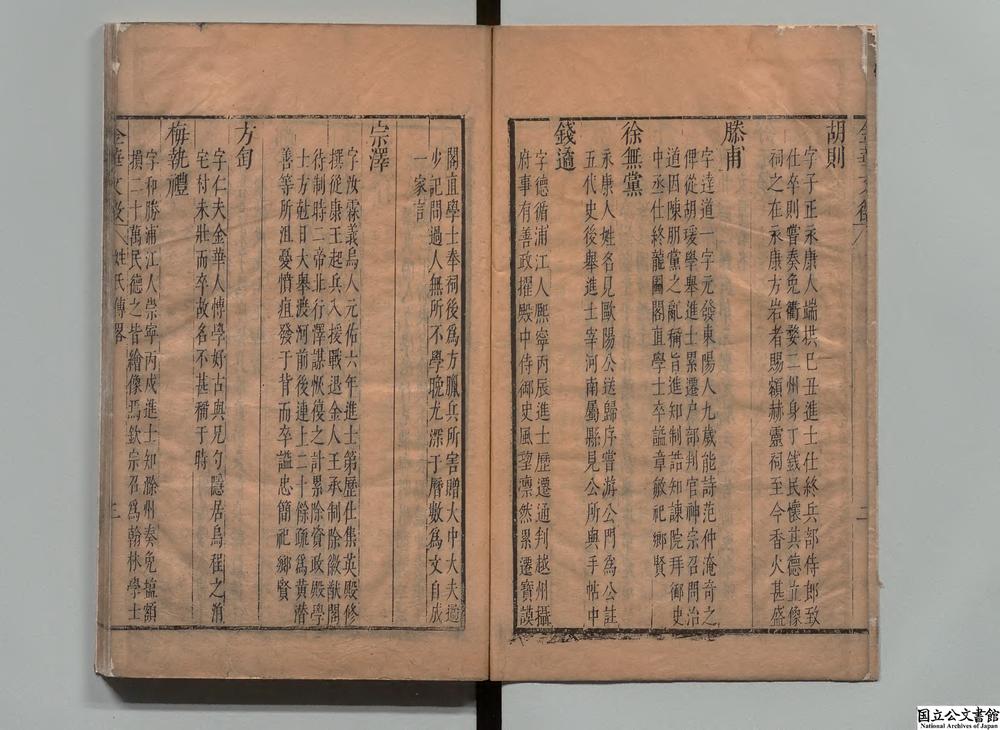 胡則
字子正永康人端拱巳丑進士仕終兵部侍郎致
仕卒則嘗奏免衢婺二州身丁錢民懷其德立像
祠之在永康方岩者賜額赫靈祠至今香火甚盛
滕甫
字達道一字元發東陽人九歲能詩范仲淹奇之
俾從胡瑗學舉進士累遷户部判官神宗召問治
道因陳朋黨之亂稱旨進知制誥知諫院拜御史
中丞仕終龍圖閣直學士卒諡章敏祀鄉賢
徐無黨
永康人姓名見歐陽公送歸序嘗游公門為公註
五代史後舉進士宰河南屬縣見公所與手帖中
錢遹
字德循浦江人熙寧丙辰進士歷遷通判越州攝
府事有善政擢殿中侍御史風望凛然累遷寶謨
閣直學士奉祠後爲方臘兵所害贈大中大夫遹
少記問過人無所不學晚尤深于曆數為文自成
一家言
宗澤
字汝霖義烏人元佑六年進士第歷仕集英殿修
撰從康王起兵入援戰退金人王承制除徽猷閣
待制時二帝北行澤謀恢復之計累除資政殿學
士方尅日大舉渡河前後連上二十餘疏爲黄潛
善等所沮憂憤疽發于背而卒謚忠簡祀鄉賢
方匋
字仁夫金華人慱學好古與兄勺隱居烏程之泊
宅村未壯而卒故名不甚稱于時
梅執禮
字和勝浦江人崇寧丙戍進士知滁州奏免塩額
損二十萬民德之皆繪像焉欽宗召爲翰林學士
金華文徵
姓氏傳畧
二
三
国立公文書館
National Archives of Japan